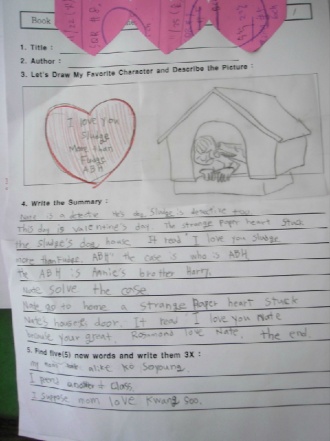 Book
1
1. Title :
2. Author :
3. Let's Draw My Favorite Character and Describe the Picture :
I love you
Sludge
More than
Fudge
ABH
4. Write the Summary :
is a detective. His dog Sludge is detective
This day is valentine's day. The strange paper heart stuck
the sludge's dog house. It read "I love you Sludge
more than Fudge, ABH" the case is who is ABH
the ABH is Annie's brother Harry.
Nate solve the case
Nate go to home a strange paper heart stuck
Nate's door. It read "I love you Nate
your great. Rosamond love Nate. the end.
5. Find five(5) new words and write them 3X :
my alike
another class
I suppose mom love Kwang Soo.